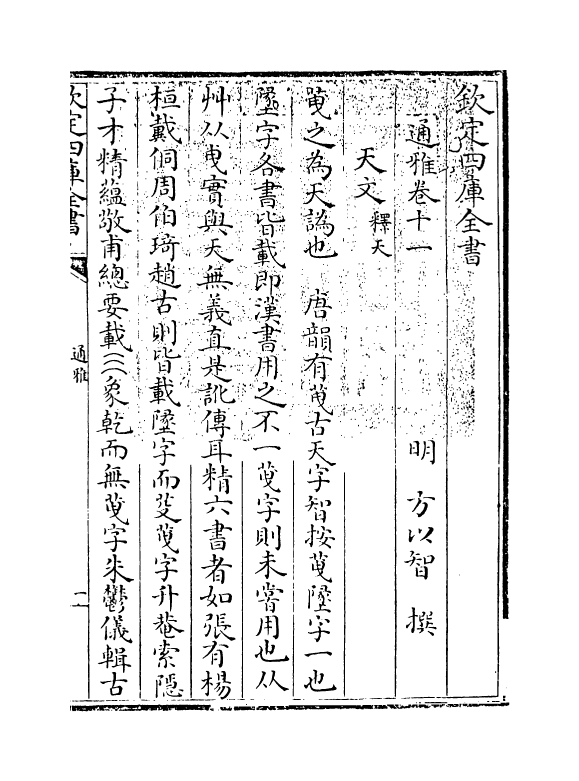 欽定四庫全書
通雅卷十一
明 方以智 撰
天文 釋天
䒶之為天譌也 唐韻有䒶古天字智按䒶墬字一也
墬字各書皆載即漢書用之不一䒶字則未嘗用也从
艸从曳實與天無義直是訛傳耳精六書者如張有楊
桓戴侗周伯琦趙古則皆載墬字而芟䒶字升菴索隱
子才精蘊敬甫總要載三象乾而無䒶字朱鬱儀輯古
欽定四庫全書
通雅
二